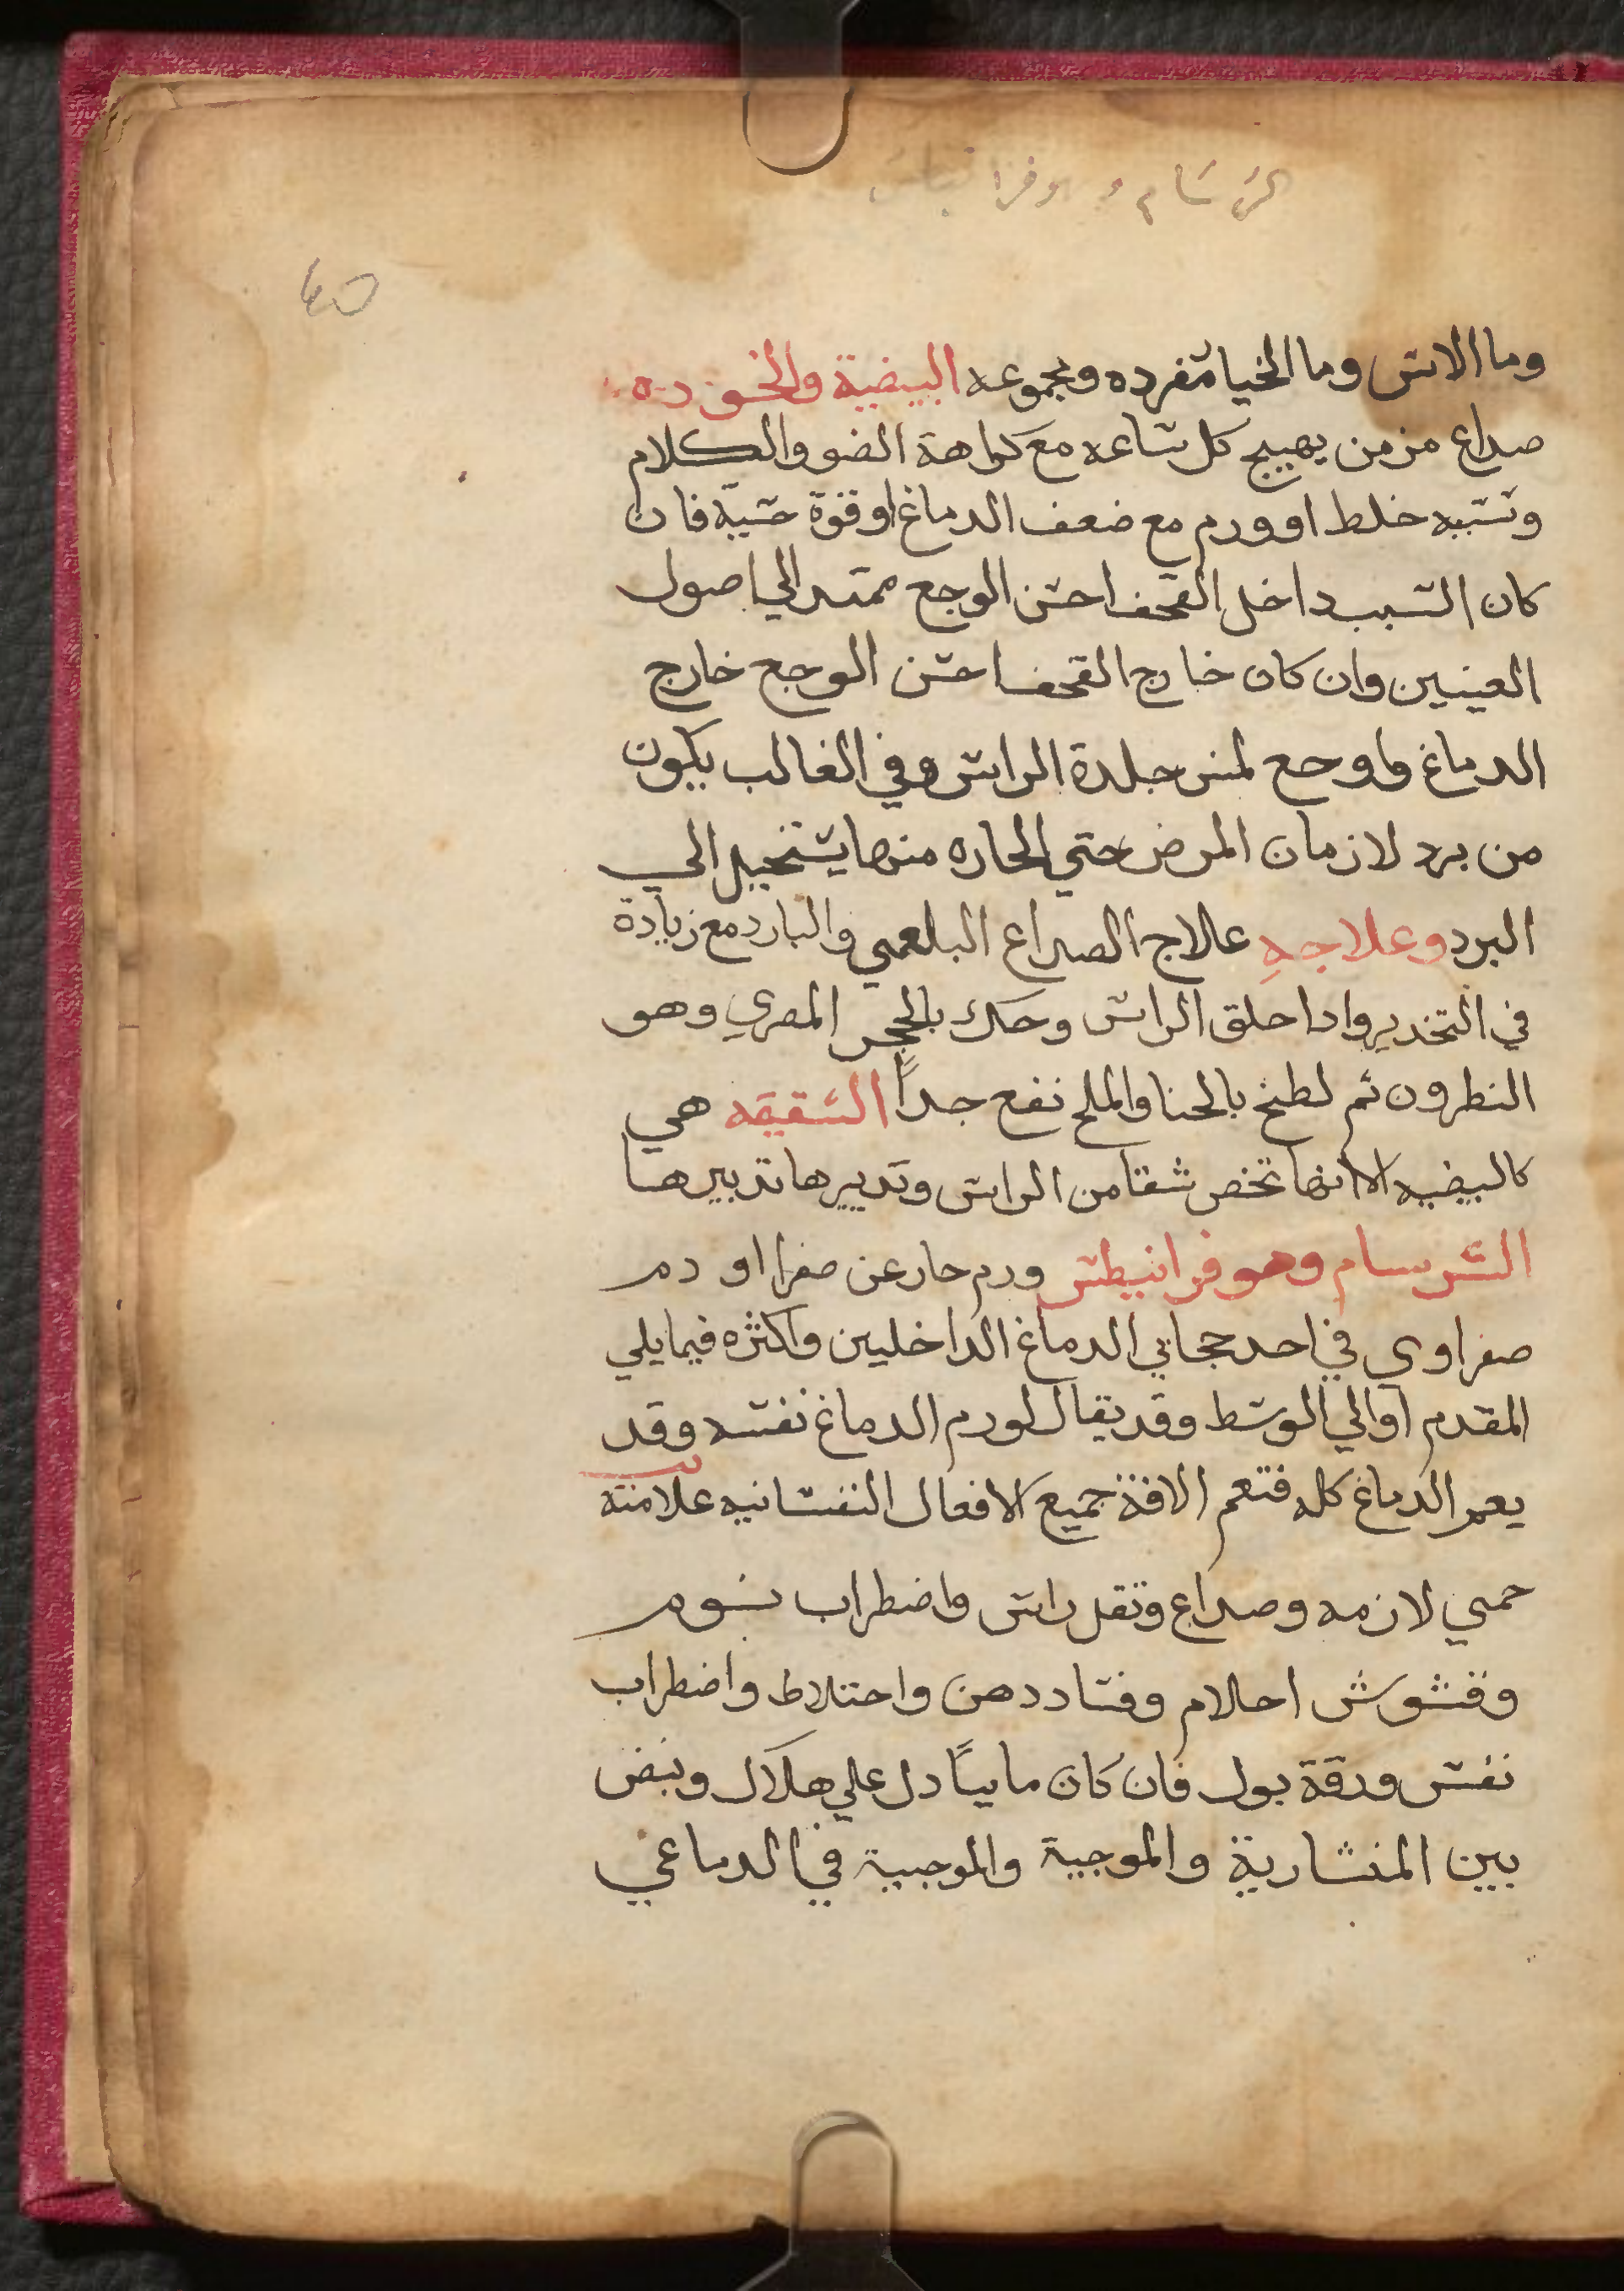 السرسام و فرانيطس
٤٥
وما الاس وما الخيا مفرده ومجموعه البيضية والخوده
صداع مزمن يهيج كل ساعه مع كراهة الضو والكلام
وسببه خلط او ورم مع ضعف الدماغ او قوة حسية فان
كان السبب داخل القحف احس الوجع ممتد الي اصول
العينين وان كان خارج القحف احس الوجع خارج
الدماغ واوجع لمس جلدة الراس وفي الغالب يكون
من برد لازمان المرض حتي الحاره منها يستحيل الي
البرد وعلاجه علاج الصداع البلغمي والبارد مع زيادة
في التخدير وادا حلق الراس وحك بالحجر المصري وهو
النطرون ثم لطخ بالحنا والملح نفع جداً الشقيقه هي
كالبيضيه الا انها تخص شقا من الراس وتدبيرها تدبيرها
السرسام وهو فرانيطس ورم حار عن صفرا او دم
صفراوي في احد حجابي الدماغ الداخلين واكثره فيما يلي
المقدم او الي الوسط وقد يقال لورم الدماغ نفسه وقد
يعم الدماغ كله فتعم الافة جميع الافعال النفسانيه علامته
حمي لازمه وصداع وثقل راس واضطراب نوم
وتشوش احلام وفساد دهن واختلاط واضطراب
نفس ورقة بول فان كان ماييًا دل علي هلاك ونبض
بين المنشارية والموجية والموجية في الدماغي